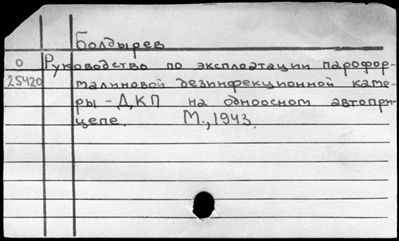 Болдырев
О Руководство по эксплоатации парофор-
25420 малиновой дезинфекционной каме-
ры - ДКП на одноосном автопри-
цепе. М., 1943.